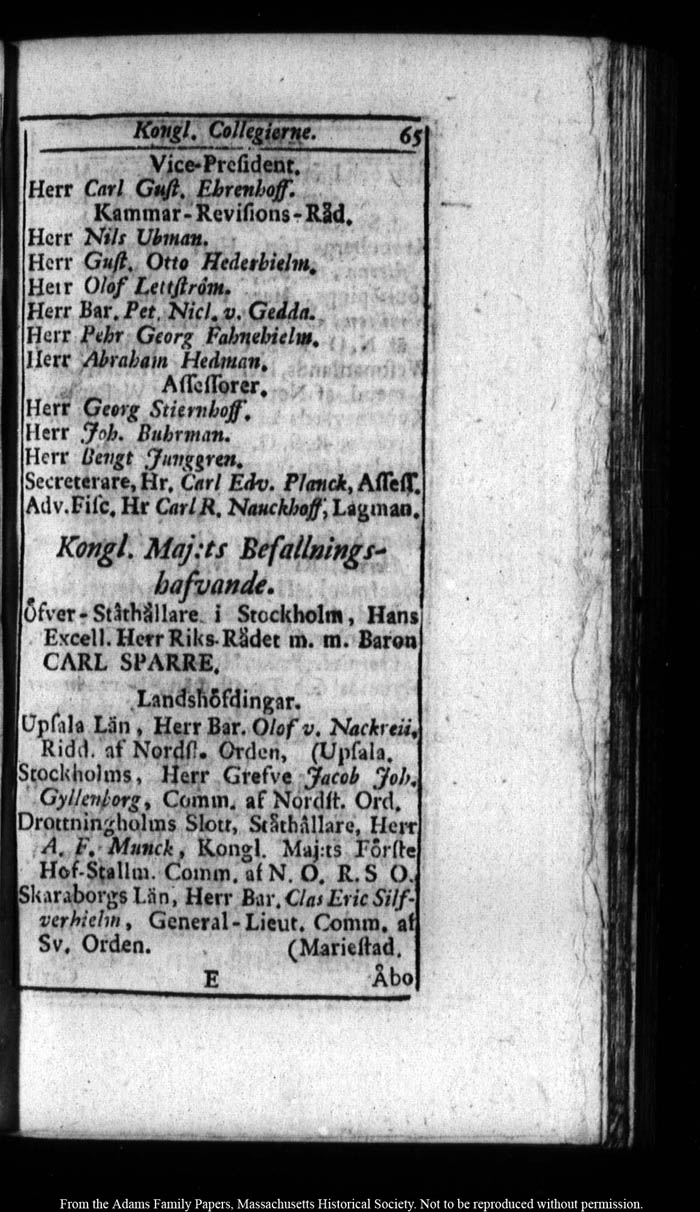 Kongl. Collegierne. 65
Vice-Preſident.
Herr Carl Guſt. Ehrenhoff.
Kammar-Reviſions-Råd.
Herr Nils Uhman.
Herr Guſt. Otto Hederhielm.
Herr Olof Lettſtröm.
Herr Bar. Pet. Nicl. v. Gedda.
Herr Pehr Georg Fahnehielm.
Herr Abraham Hedman.
Aſſeſſorer.
Herr Georg Stiernhoff.
Herr Joh. Buhrman.
Herr Bengt Junggren.
Secreterare, Hr. Carl Edv. Planck, Aſſeſſ.
Adv. Fiſc. Hr Carl R. Nauckhoff, Lagman.
Kongl. Maj:ts Befallnings-
hafvande.
Öfver-Ståthållare i Stockholm, Hans
Excell. Herr Riks-Rådet m. m. Baron
CARL SPARRE.
Landshöfdingar.
Upſala Län, Herr Bar. Olof v. Nackreii,
Ridd. af Nordſt. Orden, (Upſala.
Stockholms, Herr Grefve Jacob Joh.
Gyllenborg, Comm. af Nordſt. Ord.
Drottningholms Slott, Ståthållare, Herr
A. F. Munck, Kongl. Maj:ts Förſte
Hof-Stallm. Comm. af N. O. R. S O.
Skaraborgs Län, Herr Bar. Clas Eric Silf-
verhielm, General-Lieut. Comm. af
Sv. Orden. (Marieſtad.
E Åbo
From the Adams Family Papers, Massachusetts Historical Society. Not to be reproduced without permission.